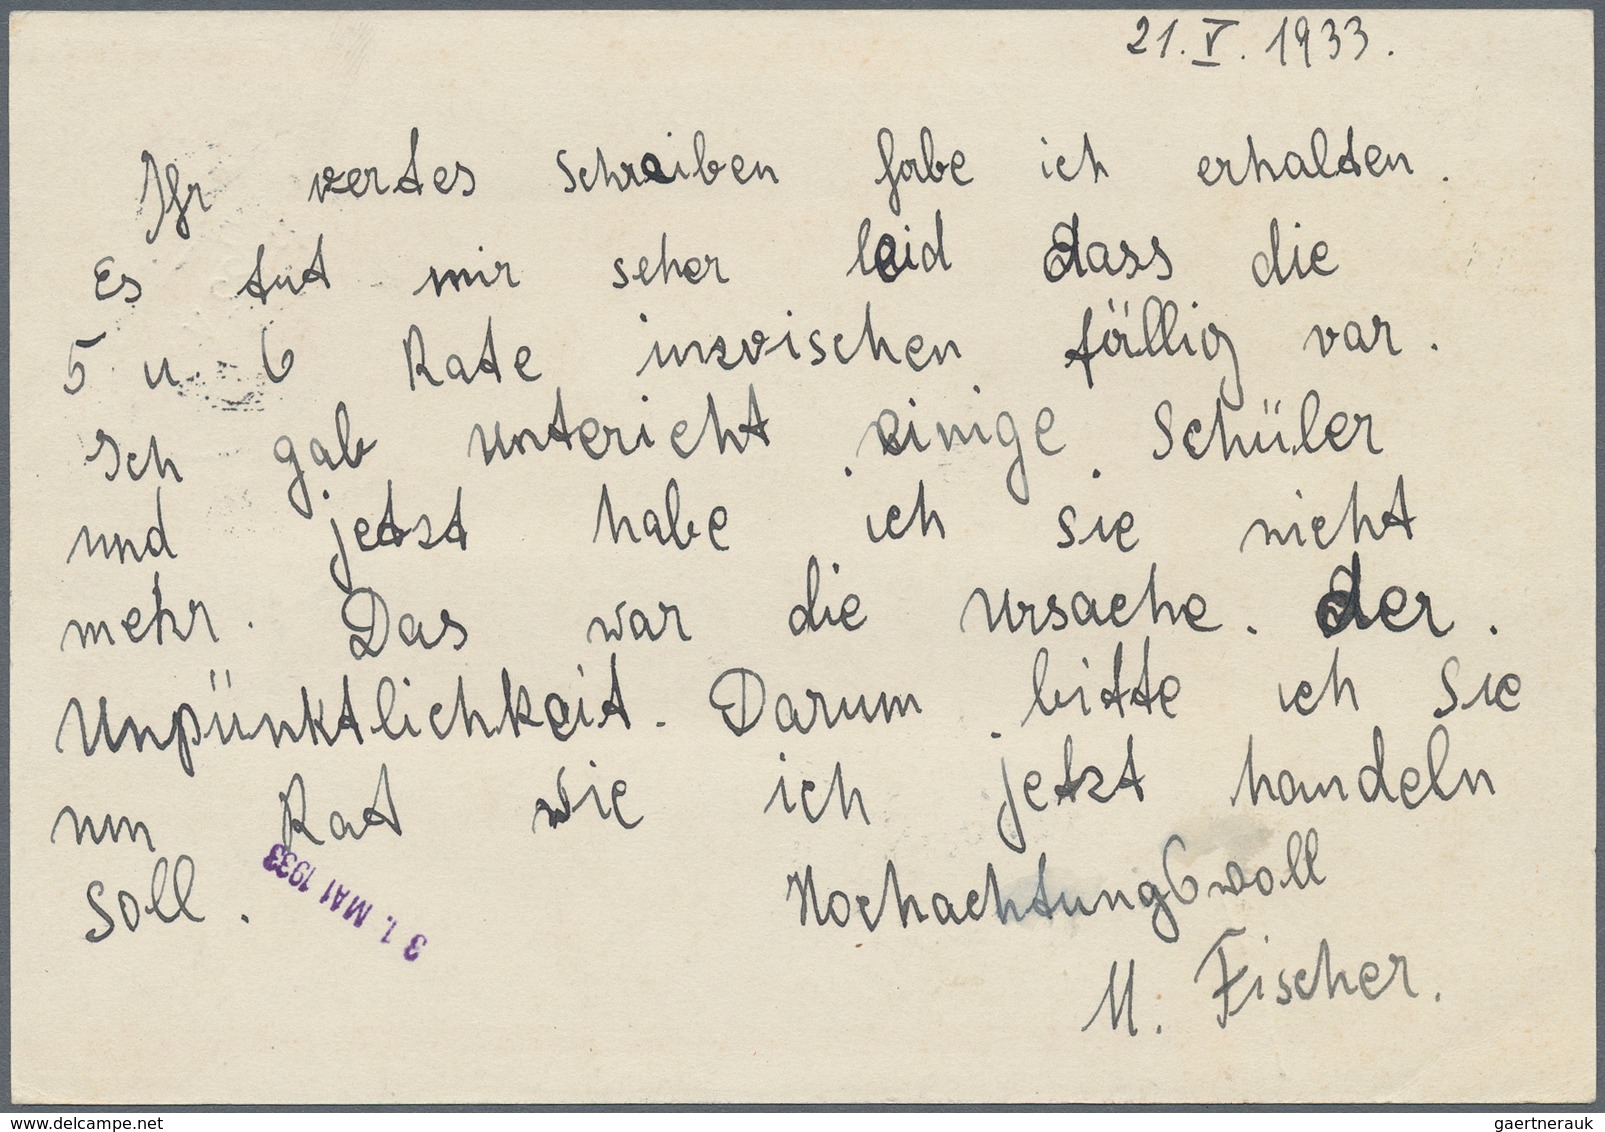 21. V. 1933.
Ihr vertes schreiben habe ich erhalten.
Es tut mir seher leid dass die
5 u. 6 Rate inzvischen fällig var.
Ich gab untericht einige Schüler
und jetzt habe ich sie nicht
mehr. Das war die ursache. der.
Unpünktlichkeit. Darum bitte ich Sie
um Rat wie ich jetzt handeln
soll.
31. MAI 1933
Hochachtungswoll
M. Fischer.
www.delcampe.net
gaertnerauk